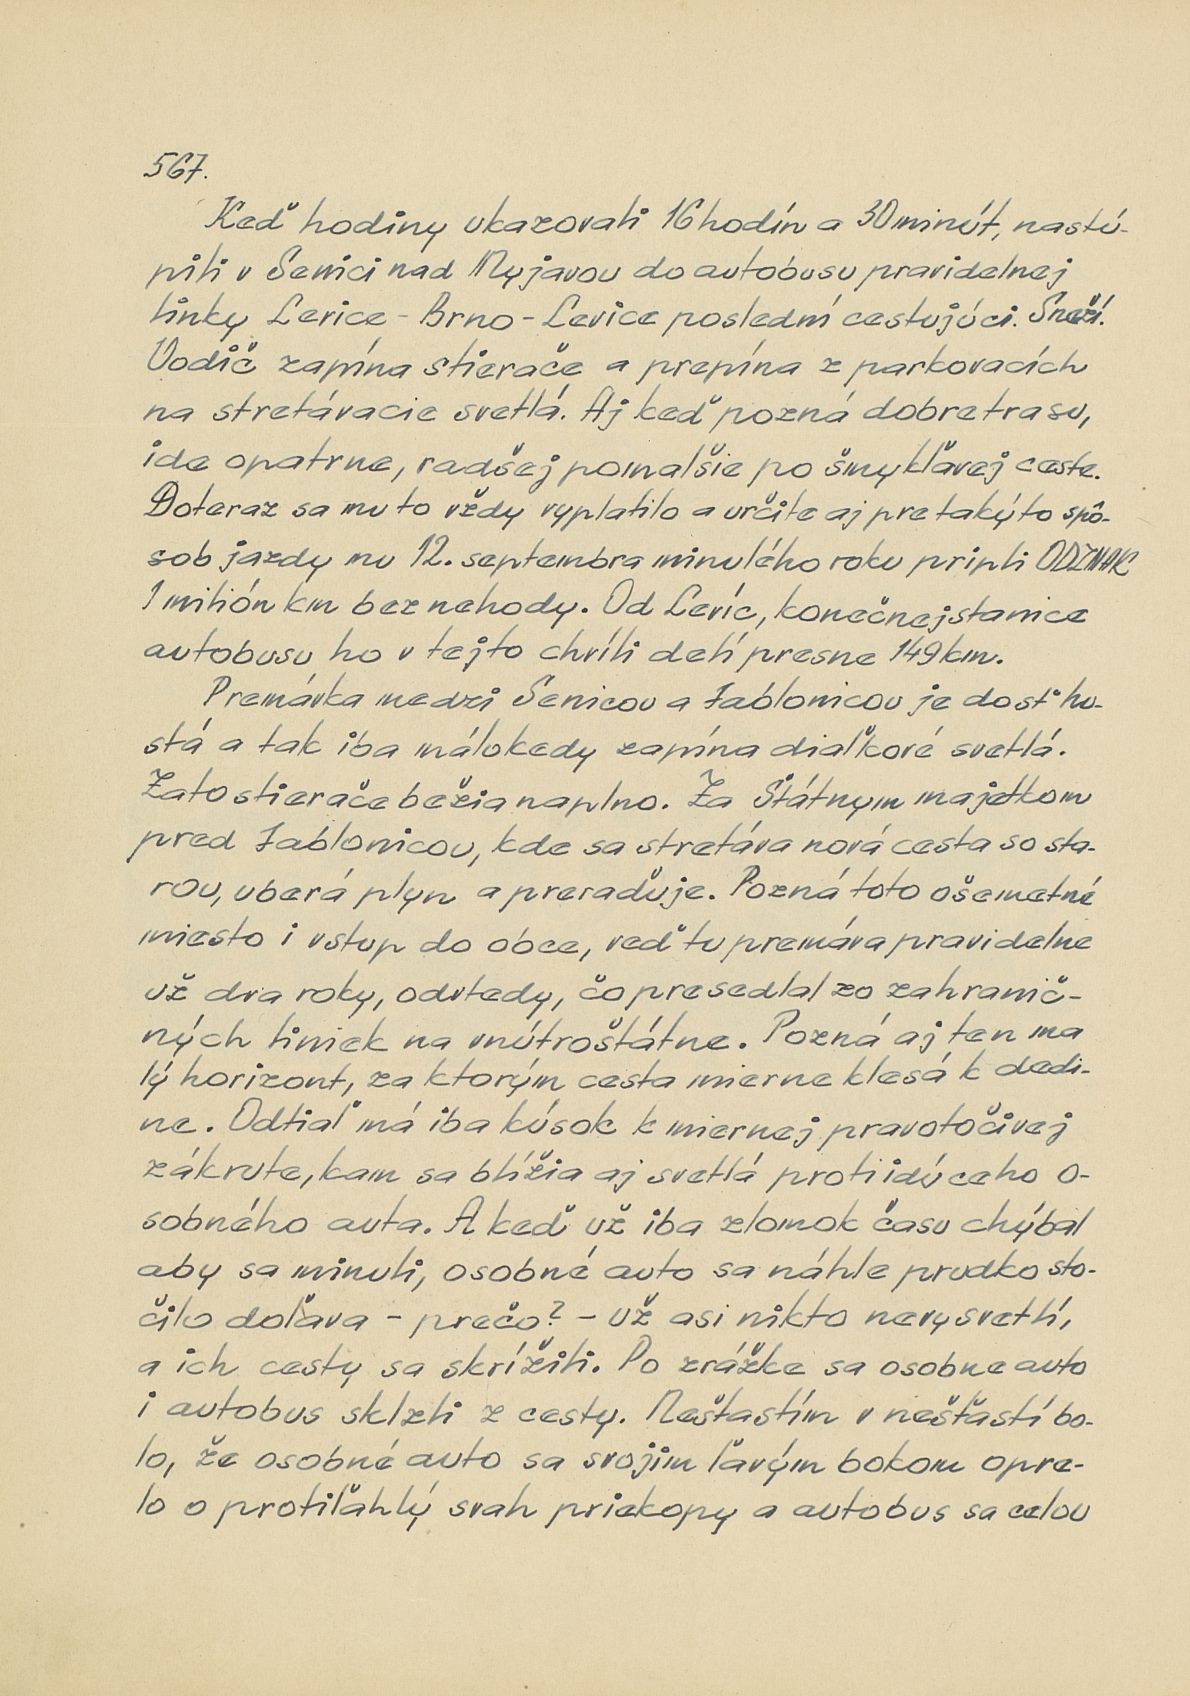 567.
Keď hodiny ukazovali 16 hodín a 30 minút, nastú-
pili v Senici nad Myjavou do autobusu pravidelnej
linky Levice - Brno - Levice poslední cestujúci. Sneží.
Vodič zapína stierače a prepína z parkovacích
na stretávacie svetlá. Aj keď pozná dobre trasu,
ide opatrne, radšej pomalšie po šmykľavej ceste.
Doteraz sa mu to vždy vyplatilo a určite aj pre takýto spô-
sob jazdy mu 12. septembra minulého roku pripli ODZNAK
1 milión km bez nehody. Od Levíc, konečnej stanice
autobusu ho v tejto chvíli delí presne 149 km.
Premávka medzi Senicou a Jablonicou je dosť hu-
stá a tak iba málokedy zapína diaľkové svetlá.
Zato stierače bežia naplno. Za Štátnym majetkom
pred Jablonicou, kde sa stretáva nová cesta so sta-
rou, uberá plyn a preraďuje. Pozná toto ošemetné
miesto i vstup do obce, veď tu premáva pravidelne
už dva roky, odvtedy, čo presedlal zo zahranič-
ných liniek na vnútroštátne. Pozná aj ten ma
lý horizont, za ktorým cesta mierne klesá k dedi-
ne. Odtiaľ má iba kúsok k miernej pravotočivej
zákrute, kam sa blížia aj svetlá protiidúceho o-
sobného auta. A keď už iba zlomok času chýbal
aby sa minuli, osobné auto sa náhle prudko sto-
čilo doľava - prečo? - už asi nikto nevysvetlí,
a ich cesty sa skrížili. Po zrážke sa osobne auto
i autobus sklzli z cesty. Nešťastím v nešťastí bo-
lo, že osobné auto sa svojim ľavým bokom opre-
lo o protiľahlý svah priekopy a autobus sa celou